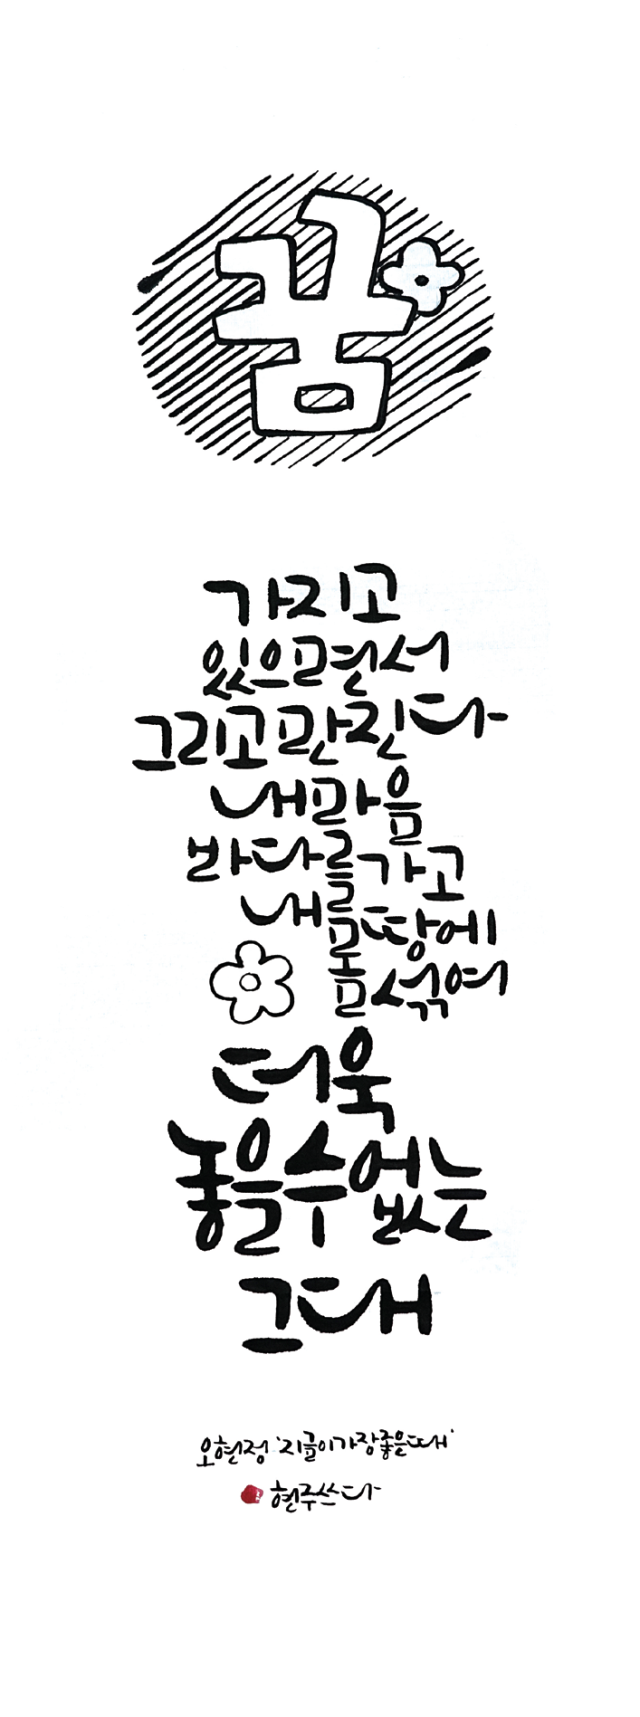 꿈
가지고
있으면서
그리고 만진다
내 마음
바다를 가고
내 몸 땅에
섞여
더욱
놓을 수 없는
그대
오현정 '지금이 가장 좋은 때'
현주쓰다